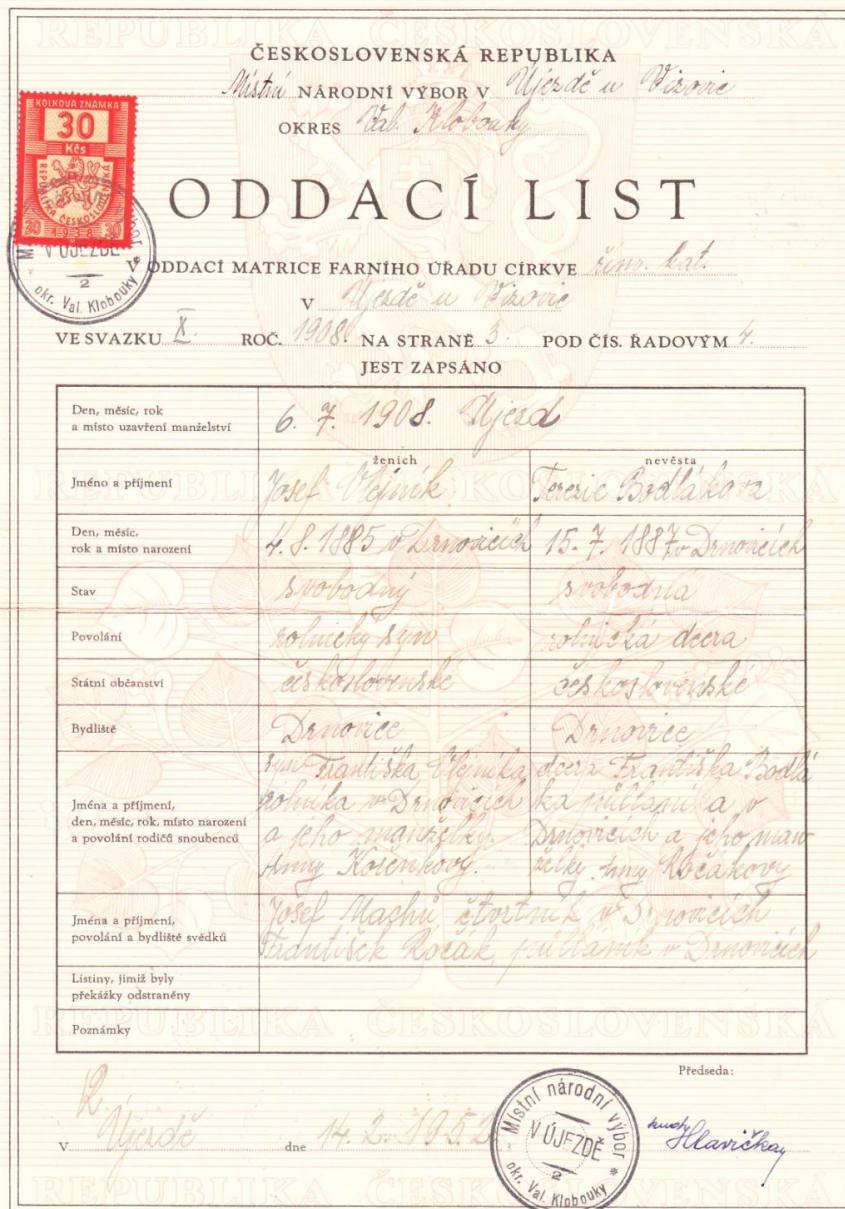 ČESKOSLOVENSKÁ REPUBLIKA
Místní NÁRODNÍ VÝBOR V Újezdě u Vizovic
OKRES Val. Klobouky
KOLKOVÁ ZNÁMKA
30
Kčs
REPUBLIKA ČESKOSLOVENSKÁ
30 30
ODDACÍ LIST
V ÚJEZDĚ
2
okr. Val. Klobouky
V ODDACÍ MATRICE FARNÍHO ÚŘADU CÍRKVE řím. kat.
V Újezdě u Vizovic
VE SVAZKU X. ROČ. 1908. NA STRANĚ 3. POD ČÍS. ŘADOVÝM 4.
JEST ZAPSÁNO
Den, měsíc, rok
a místo uzavření manželství
6. 7. 1908. Újezd
ženich nevěsta
Jméno a příjmení Josef Olejník Terezie Bodláková
Den, měsíc,
rok a místo narození
4. 8. 1885 v Drnovicích 15. 7. 1887 v Drnovicích
Stav svobodný svobodná
Povolání rolnický syn rolnická dcera
Státní občanství československé československé
Bydliště Drnovice Drnovice
Jména a příjmení,
den, měsíc, rok, místo narození
a povolání rodičů snoubenců
syn Františka Olejníka
rolníka v Drnovicích
a jeho manželky
Anny Kořenkovy.
dcera Františka Bodlá
ka půlláníka v
Drnovicích a jeho man
želky Anny Kočákovy
Jména a příjmení,
povolání a bydliště svědků
Josef Machů čtvrtník v Drnovicích
František Kočák, půlláník v Drnovicích
Listiny, jimiž byly
překážky odstraněny
Poznámky
REPUBLIKA ČESKOSLOVENSKÁ
Předseda:
V Újezdě dne 14. 2. 1952
Místní národní výbor
V ÚJEZDĚ
2
okr. Val. Klobouky
Hlavička